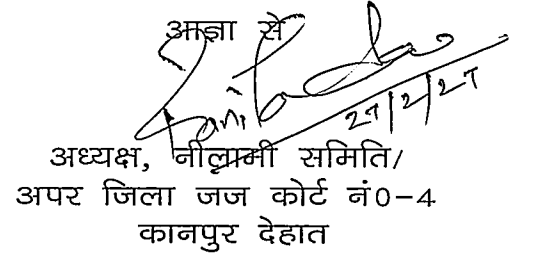 आज्ञा से
27/2/27
अध्यक्ष, नीलामी समिति/
अपर जिला जज कोर्ट नं0-4
कानपुर देहात